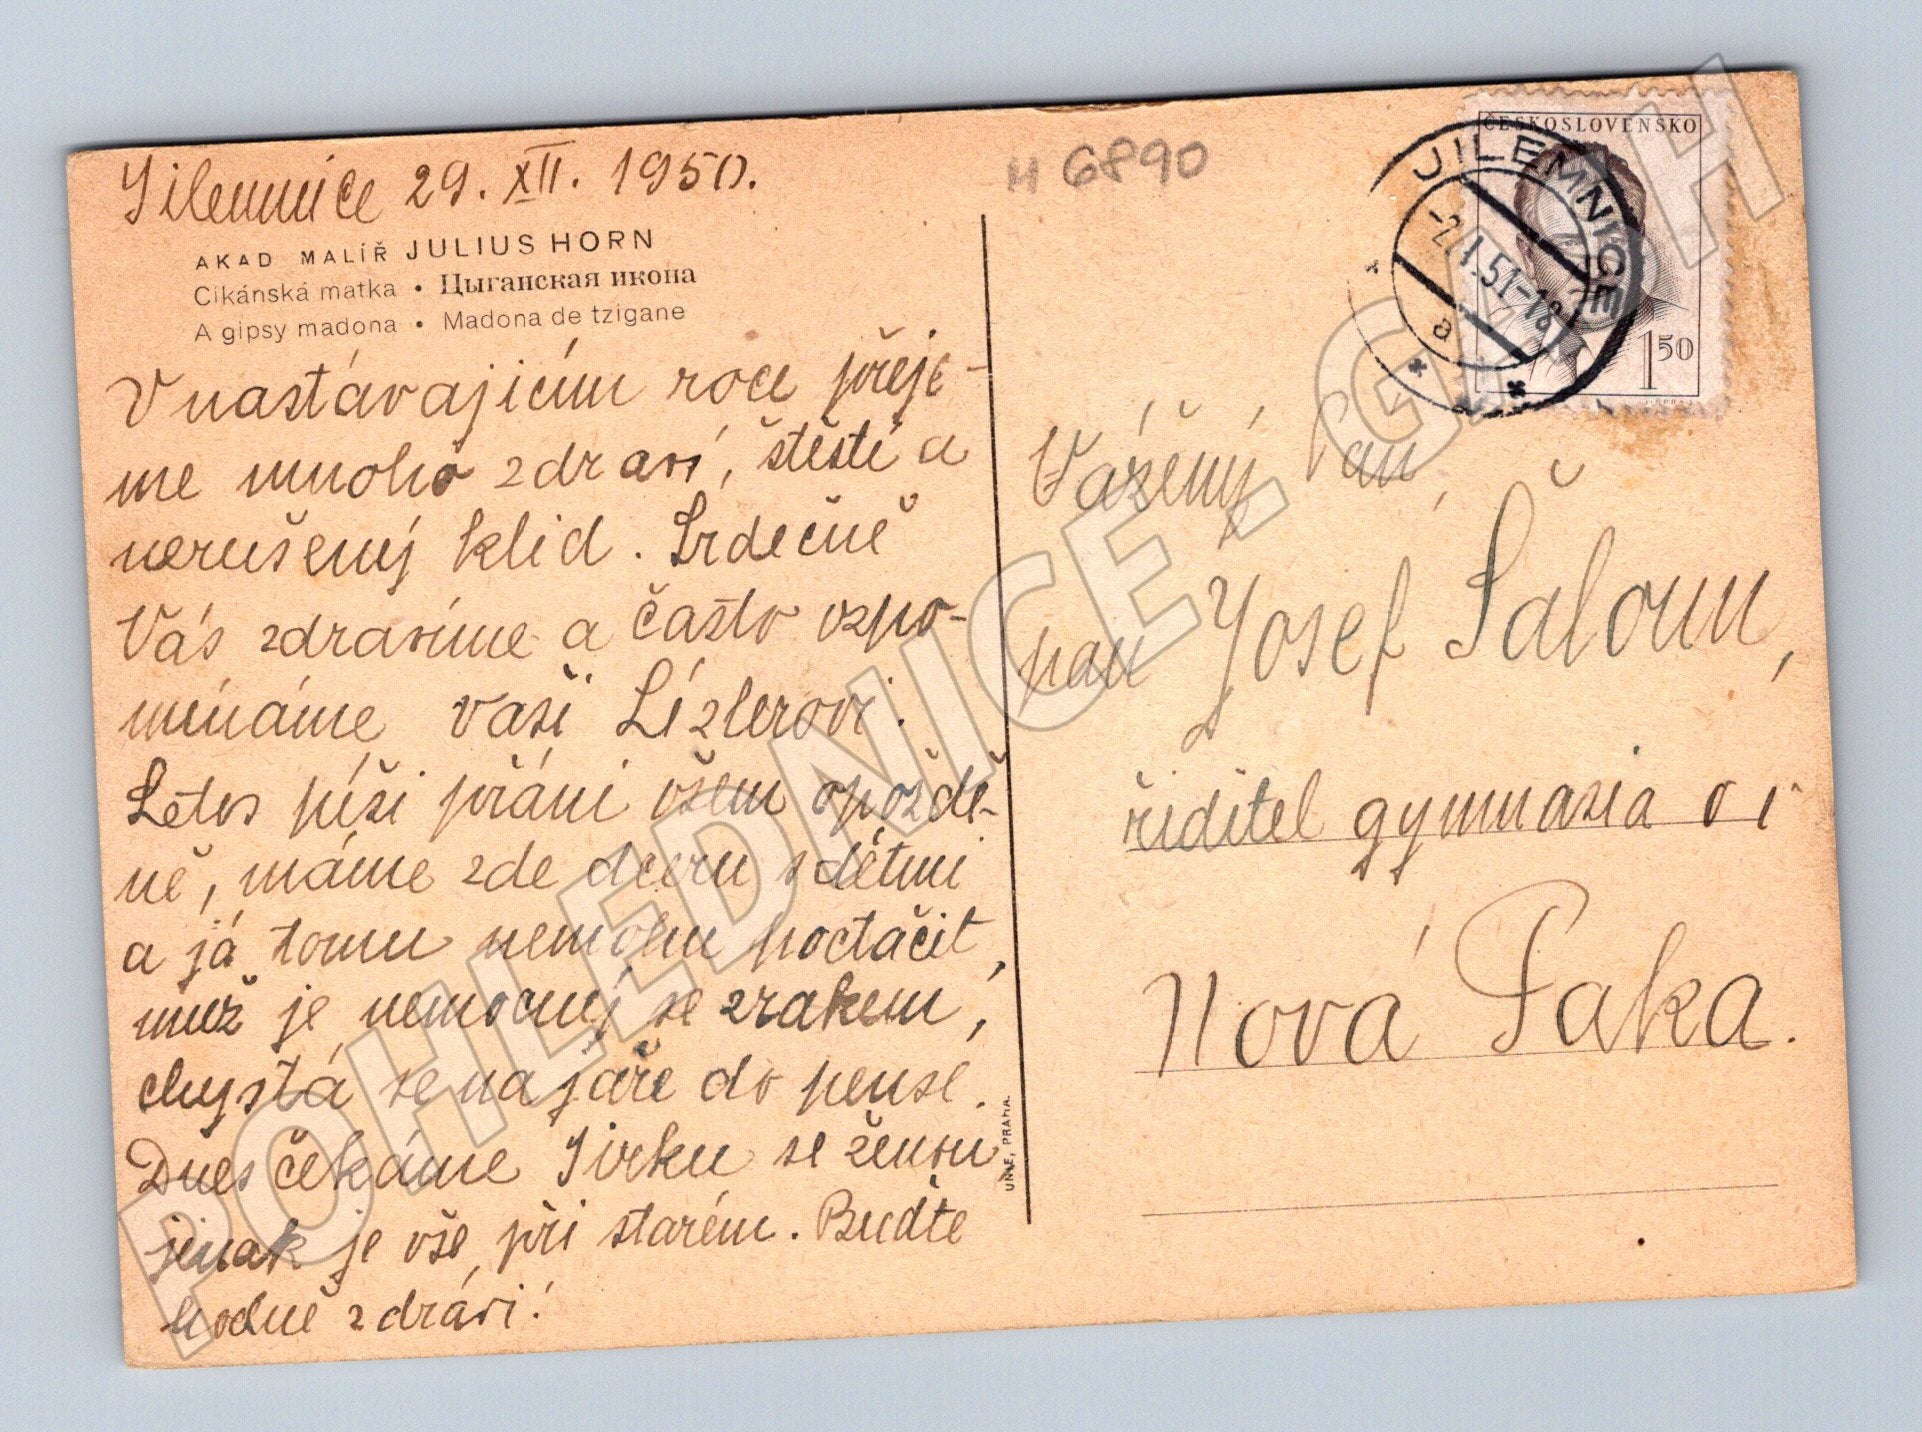 Jilemnice 29. XII. 1950.
AKAD MALÍŘ JULIUS HORN
Cikánská matka • Цыганская икона
A gipsy madona • Madona de tzigane
V nastávajícím roce přeje-
me mnoho zdraví, štěstí a
nerušený klid. Srdečně
Vás zdravíme a často vzpo-
mínáme vaši Lízlerovi.
Letos píši přání všem opoždě-
ně, máme zde dceru s dětmi
a já tomu nemohu postačit,
muž je nemocný se zrakem,
chystá se na jaře do pense.
Dnes čekáme Jirku se ženou
jinak je vše při starém. Buďte
hodně zdrávi!
UNIE, PRAHA.
H 6890
ČESKOSLOVENSKO
1 50
JILEMNICE
-2.I.51-18
a
Vážený Pan,
pan Josef Šaloun,
řiditel gymnasia v v
Nová Paka.
POHLEDNICE.GALOH